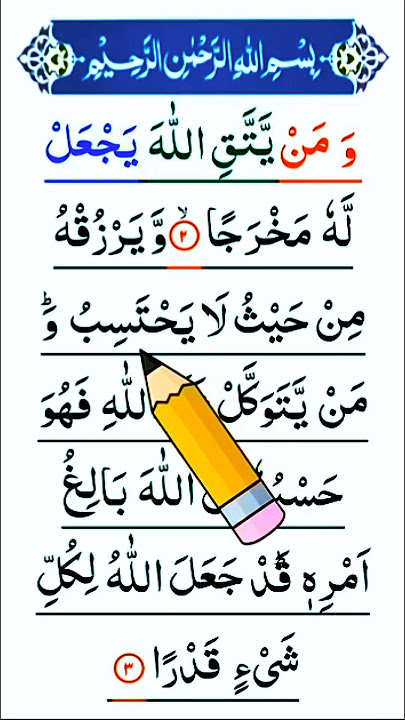 بِسْمِ اللهِ الرَّحْمٰنِ الرَّحِيْمِ
وَ مَنْ يَّتَّقِ اللّٰهَ يَجْعَلْ
لَّهٗ مَخْرَجًا ۙ۲ وَّ يَرْزُقْهُ
مِنْ حَيْثُ لَا يَحْتَسِبُ ؕ وَ
مَنْ يَّتَوَكَّلْ اللّٰهِ فَهُوَ
اللّٰهَ بَالِغُ
اَمْرِهٖ ؕ قَدْ جَعَلَ اللّٰهُ لِكُلِّ
شَیْءٍ قَدْرًا ۳